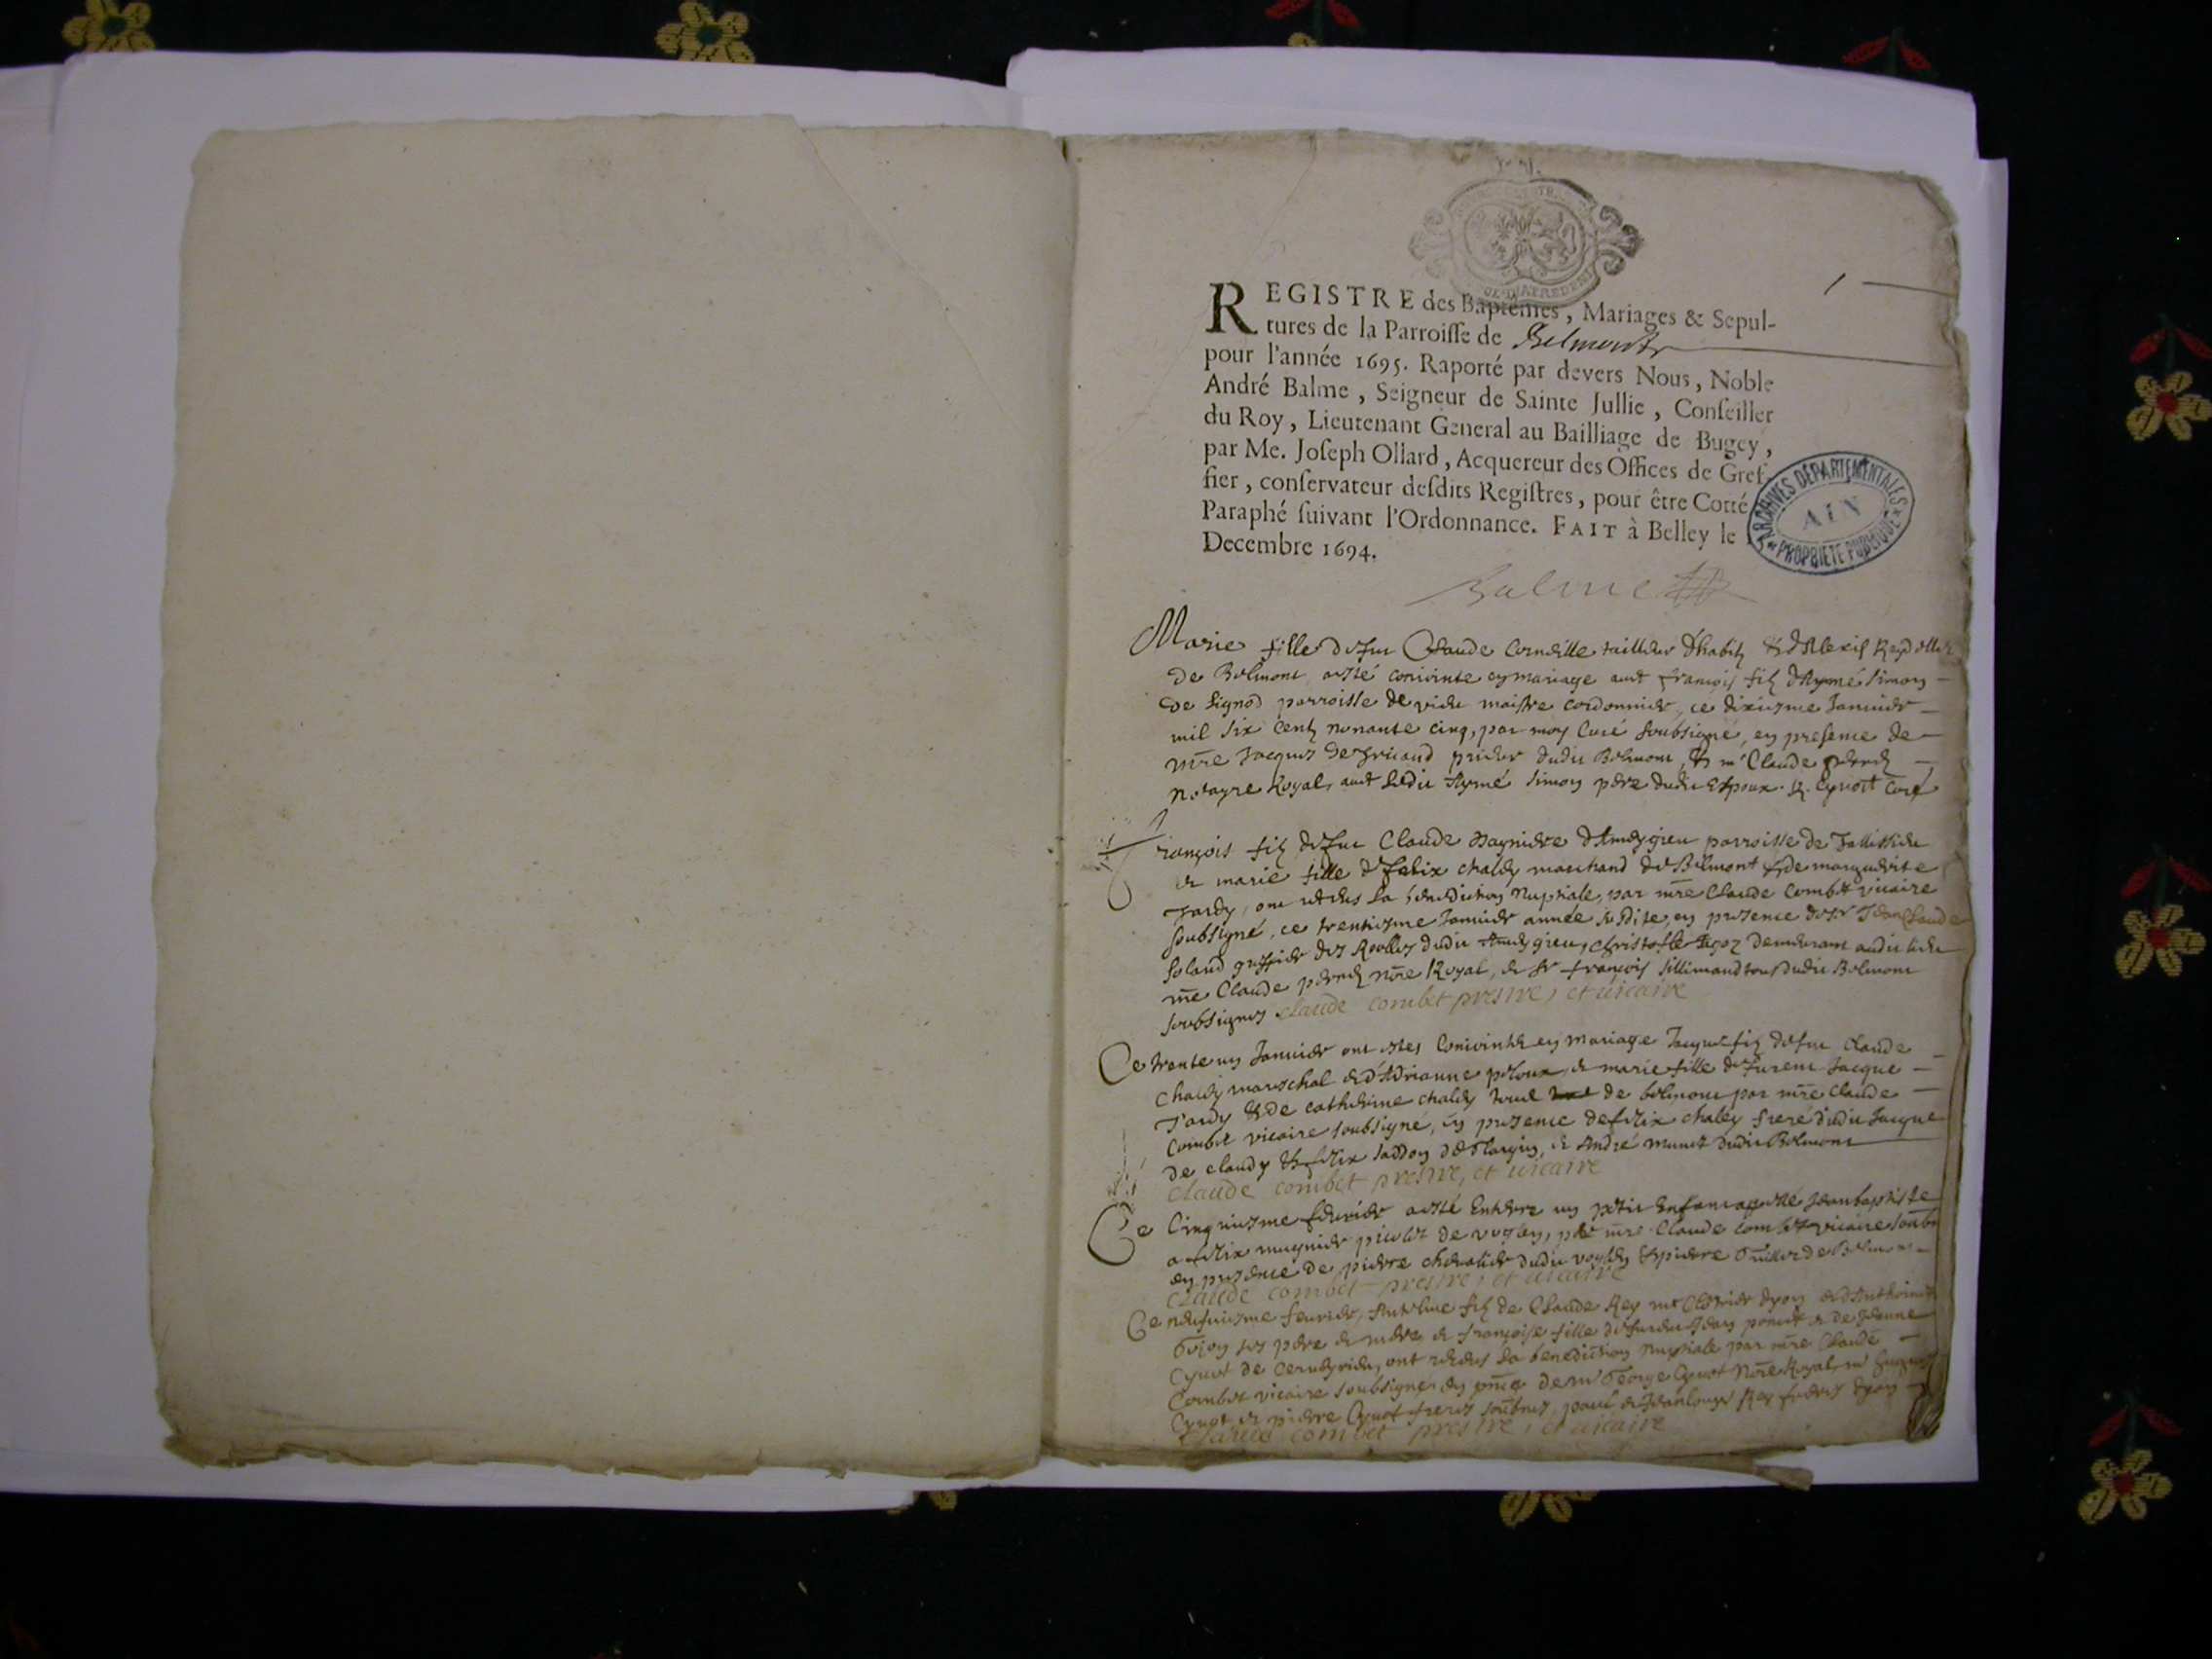 1
REGISTRE des Baptêmes, Mariages & Sepul-
tures de la Parroisse de Belmont
pour l'année 1695. Raporté par devers Nous, Noble
André Balme, Seigneur de Sainte Jullie, Conseiller
du Roy, Lieutenant General au Bailliage de Bugey,
par Me. Joseph Ollard, Acquereur des Offices de Gref-
fier, conservateur desdits Registres, pour être Cotté
Paraphé suivant l'Ordonnance. FAIT à Belley le
Decembre 1694.
ARCHIVES DEPARTEMENTALES
AIN
PROPRIETE PUBLIQUE
Balme
Marie fille de fu Claude Corneille tailleur d'habitz & d'Alexis
de Belmont a esté conjointe en mariage avec françois filz d'Aymé Simon
de Lignod parroisse de vieu maistre cordonnier, ce dixiesme Janvier
mil six centz nonante cinq, par moy Curé soubsigné, en presence de
mre Jacques prieur dudit Belmont, & me Claude
Notayre Royal, avec ledit Aymé Simon père dudit Espoux. Cyvoct Curé
françois filz de fu Claude d'Ameyzieu parroisse de
et marie fille de felix chaley marchand de Belmont & de marguerite
Tardy, ont receus la benediction Nuptiale, par mre Claude Combet vicaire
soubsigné, ce trentiesme Janvier année susdite, en presence de Sr Jean Claude
greffier des Roolles dudit Ameyzieu, Christofle demeurant audit lieu
me Claude Nore Royal, et Sr françois Sillimand tous dudit Belmont
soubsignes claude combet prestre, et vicaire
Ce trente un Janvier ont estes Conjointz en Mariage Jacque filz de fu Claude
Chaley mareschal et d'Adrianne peloux, et marie fille de furent Jacque
Tardy & de catherine chaley tout de belmont par mre Claude
Combet vicaire soubsigné, en presence de felix chaley frere dudit Jacque
de claudy & felix, et André munet dudit Belmont
claude combet prestre, et vicaire
Ce Cinquiesme febvrier a esté Enterré un petit Enfant Jean baptiste
a felix mugnier de vogley, par mre Claude Combet vicaire soubne
en presence de pierre chevalier dudit vogley & pierre de Belmont
claude combet prestre, et vicaire
Ce neufviesme febvrier, Anthelme filz de Claude Rey d'yon et d'Anthoinette
ses père et mère et françoise fille de fu Jean et de Jeanne
Cyvoct de Cerveyrieu, ont receus la benediction nuptiale par mre Claude
Combet vicaire soubsigné, en pnce de me George Cyvoct Nore Royal
Cyvoct et pierre Cyvoct freres soubnes, paul et Jean Louys Rey freres d'yon
claude combet prestre, et vicaire